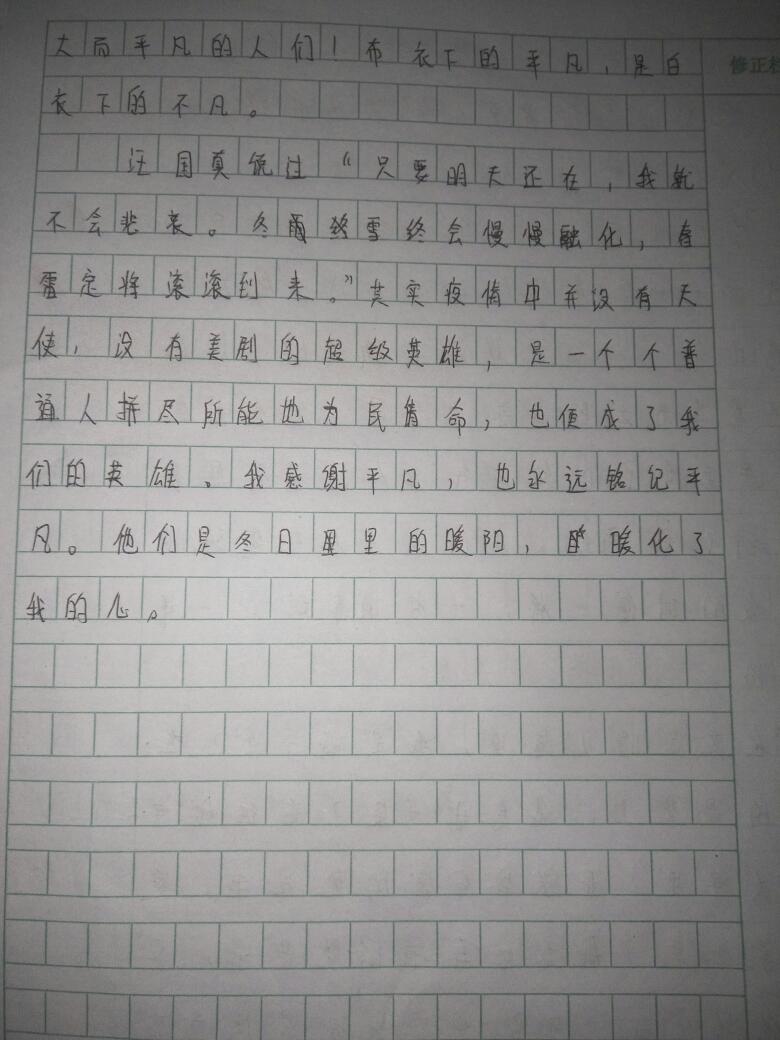 大而平凡的人们！布衣下的平凡，是白
修正栏
衣下的不凡。
汪国真说过“只要明天还在，我就
不会悲哀。冬雨终雪终会慢慢融化，春
雷定将滚滚到来。”其实疫情中并没有天
使，没有美剧的超级英雄，是一个个普
通人拼尽所能地为民售命，也便成了我
们的英雄。我感谢平凡，也永远铭记平
凡。他们是冬日里里的暖阳，暖化了
我的心。